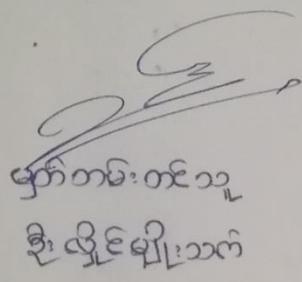 မှတ်တမ်းတင်သူ
ဦးလှိုင်မျိုးသက်